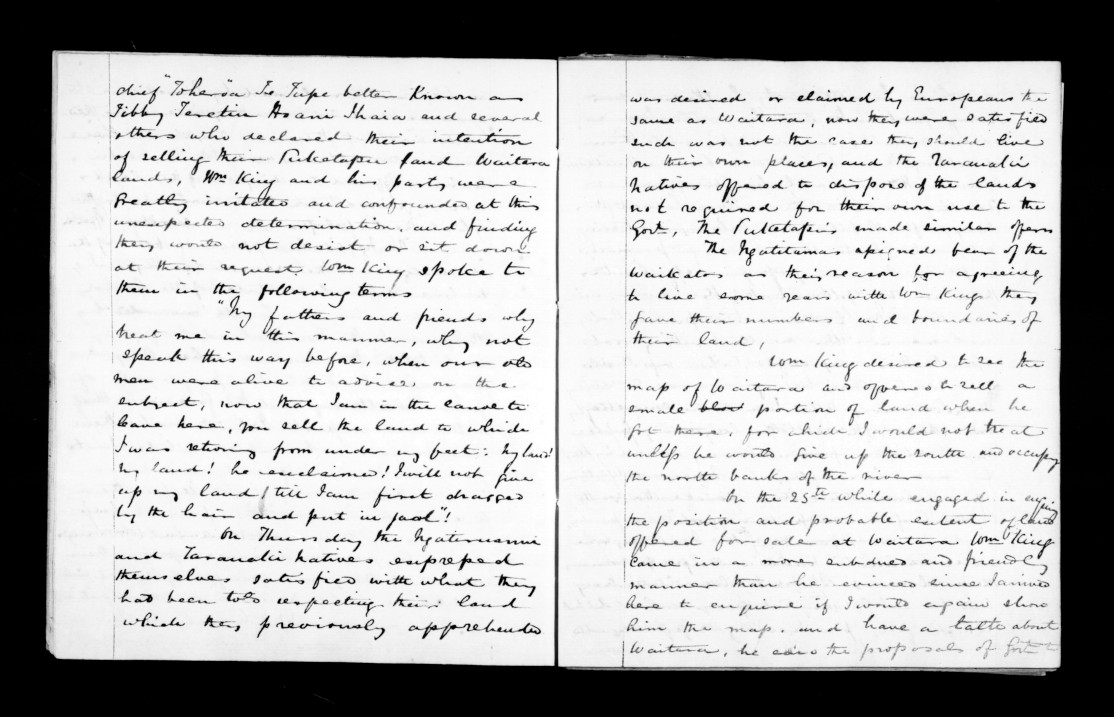 chief "Toheroa" Te Tupe better Known as
Tibby Teretiu Hoani Ihaia and several
others who declared their intention
of selling their Puketapu land Waitara
lands, Wm King and his party were
Greatly irritated and confounded at this
unexpected determination, and finding
they would not desist or sit down
at their request Wm King spoke to
them in the following terms
"My fathers and friends why
treat me in this manner, why not
speak this way before, when our old
men were alive to advise on the
subject, now that I am in the canoe to
leave here, you sell the land to which
I was retiring from under my feet: My land!
My land! he exclaimed! I will not give
up my land till I am first dragged
by the hair and put in jaol"!
On Thursday the Ngateruanui
and Taranaki natives expressed
themselves satisfied with what they
had been told respecting their land
which they previously apprehended
was desired or claimed by Europeans the
same as Waitara, now they were satisfied
such was not the case they should live
on their own places, and the Taranaki
Natives offered to dispose of the lands
not required for their own use to the
Govt, The Puketapus made similar offers
The Ngatitamas assigned fear of the
Waikatos as their reason for agreeing
to live some years with Wm King they
gave their numbers and boundaries of
their land,
Wm King desired to see the
map of Waitara and offered to sell a
small portion of land when he
got there, for which I would not treat
unless he would give up the south and occupy
the north banks of the river
On the 25th while engaged in
the position and probable extent of land
offered for sale at Waitara Wm King
came in a more subdued and friendly
manner than he evinced since I arrived
here to enquire if I would again show
him the map, and have a talk about
Waitara, he said the proposals of